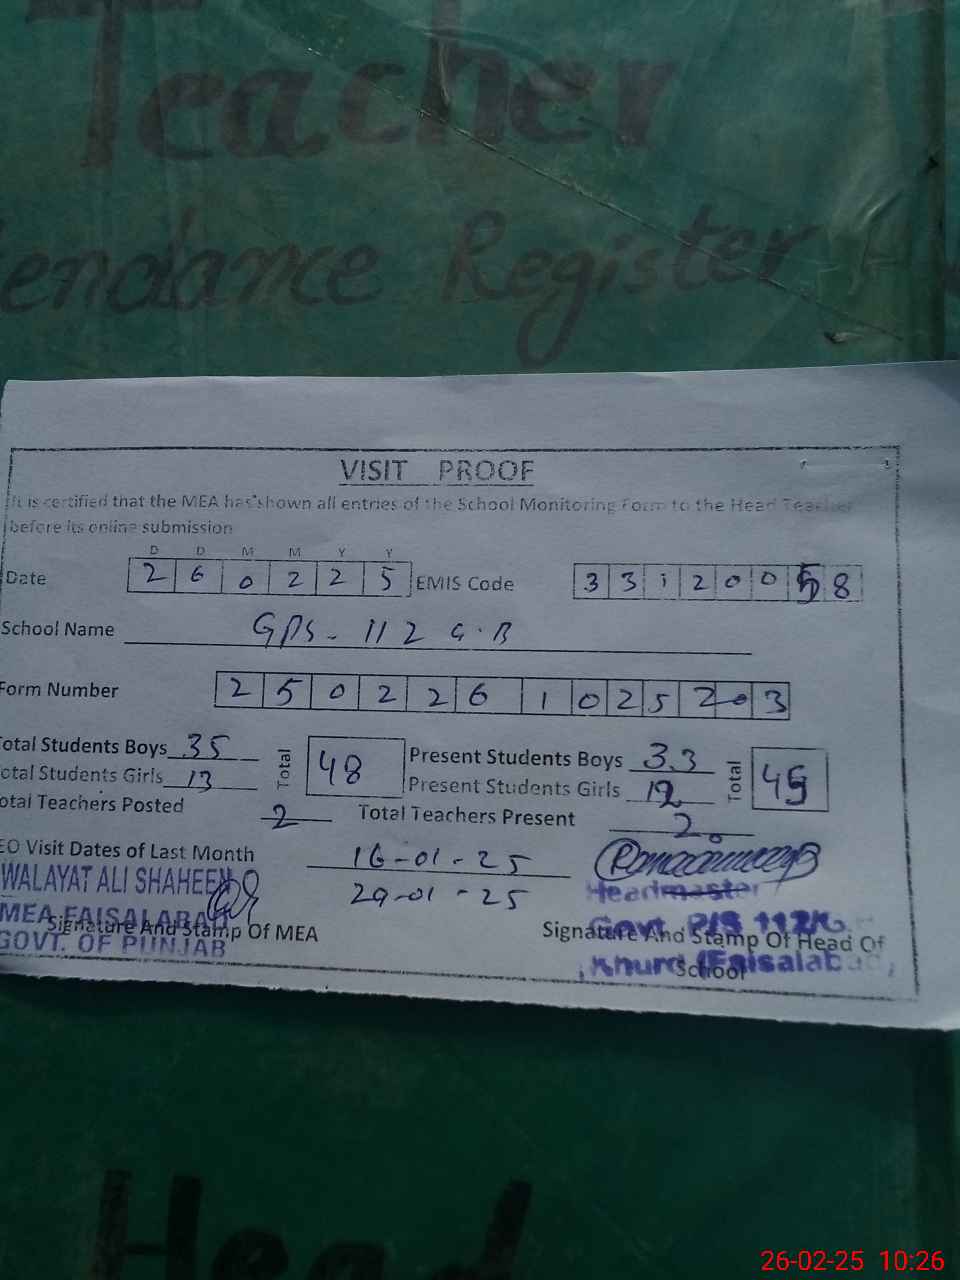 Teacher
endance Register
VISIT PROOF
It is certified that the MEA has shown all entries of the School Monitoring Form to the Head Teacher
before its online submission
D D M M Y Y
Date 2 6 0 2 2 5 EMIS Code 3 3 1 2 0 0 5 8
School Name GPS- 112 G.B
Form Number 2 5 0 2 2 6 1 0 2 5 2 0 3
otal Students Boys 35 Total 48 Present Students Boys 33 Total 45
otal Students Girls 13 Present Students Girls 12
otal Teachers Posted 2 Total Teachers Present 2
EO Visit Dates of Last Month 16-01-25
29-01-25
WALAYAT ALI SHAHEEN
MEA FAISALABAD
GOVT. OF PUNJAB
Signature And Stamp Of MEA
Headmaster
Govt. P/S 112/G.
Khurd (Faisalabad)
Signature And Stamp Of Head Of
School
Head
26-02-25 10:26